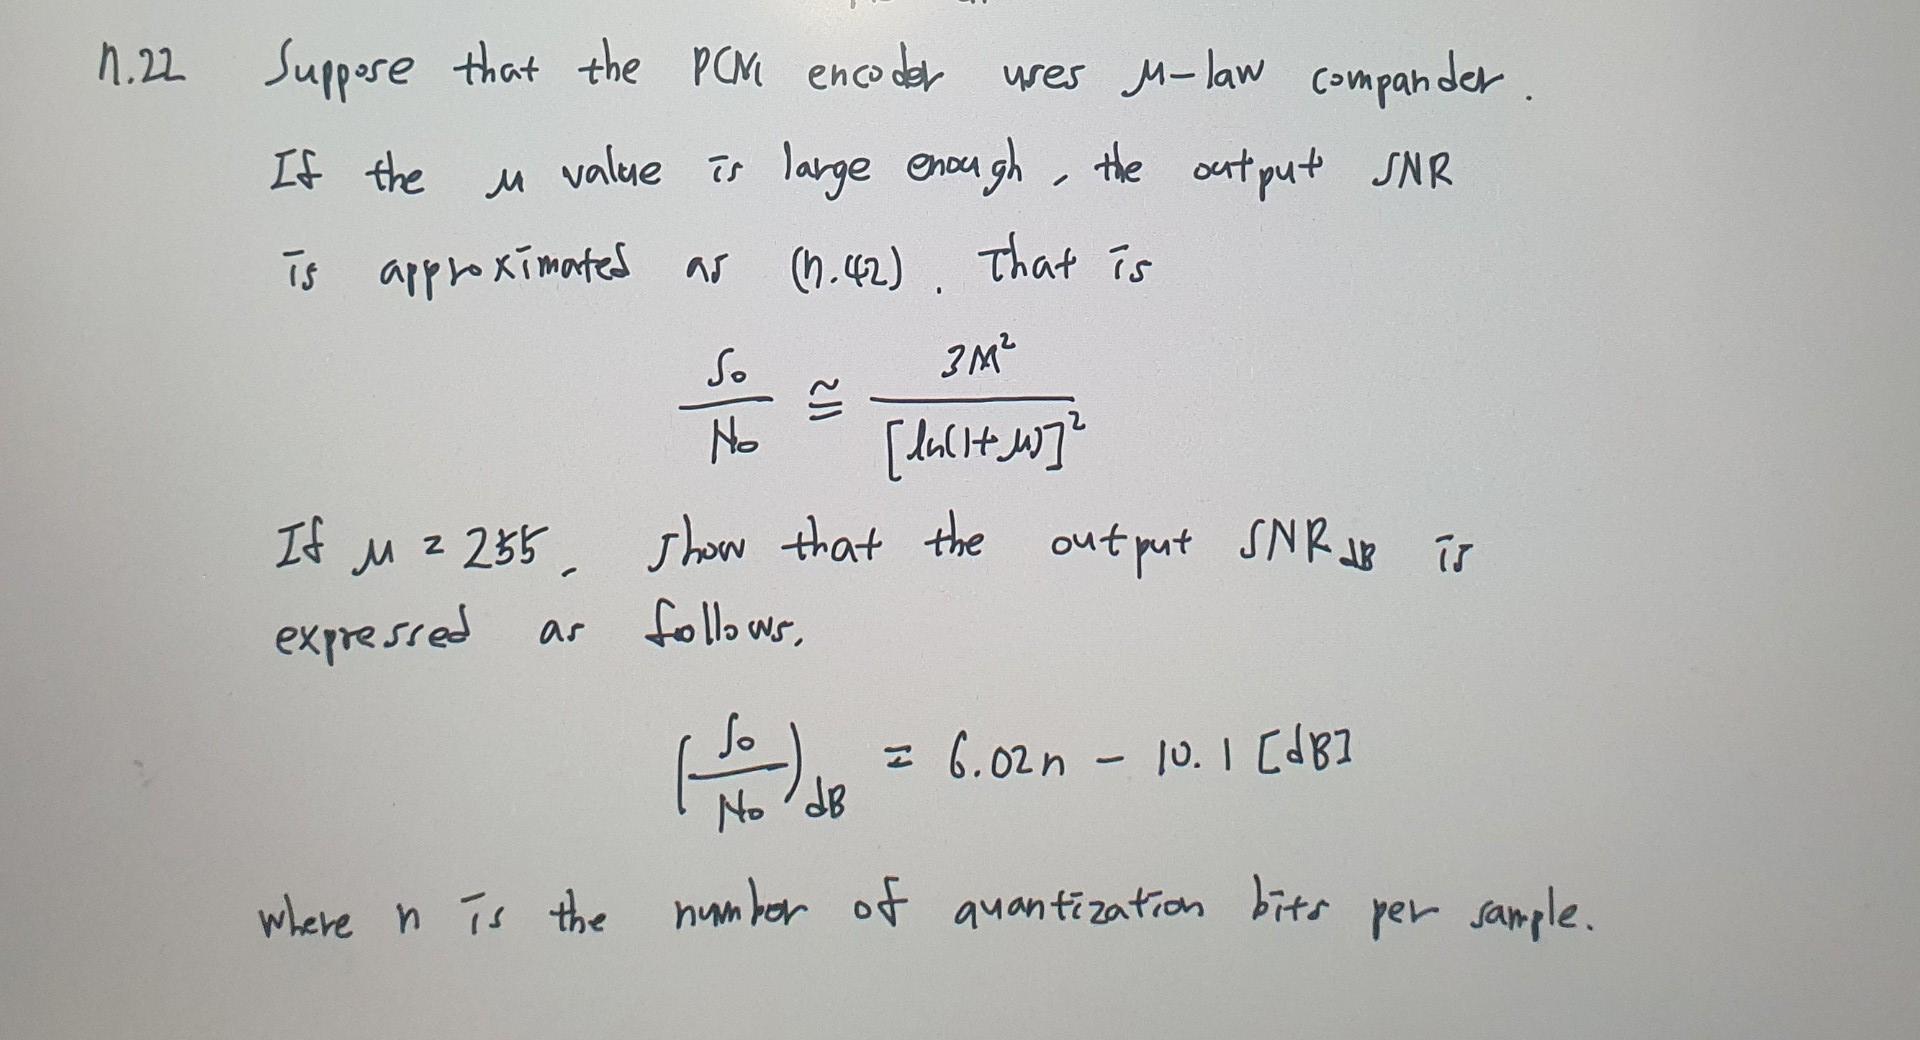 n.22 Suppose that the PCM encoder uses μ-law compander.
If the μ value is large enough, the output SNR
is approximated as (n.42). That is
So/No ≅ 3M²/[ln(1+μ)]²
If μ = 255, show that the output SNR dB is
expressed as follows.
(So/No)dB = 6.02n - 10.1 [dB]
where n is the number of quantization bits per sample.